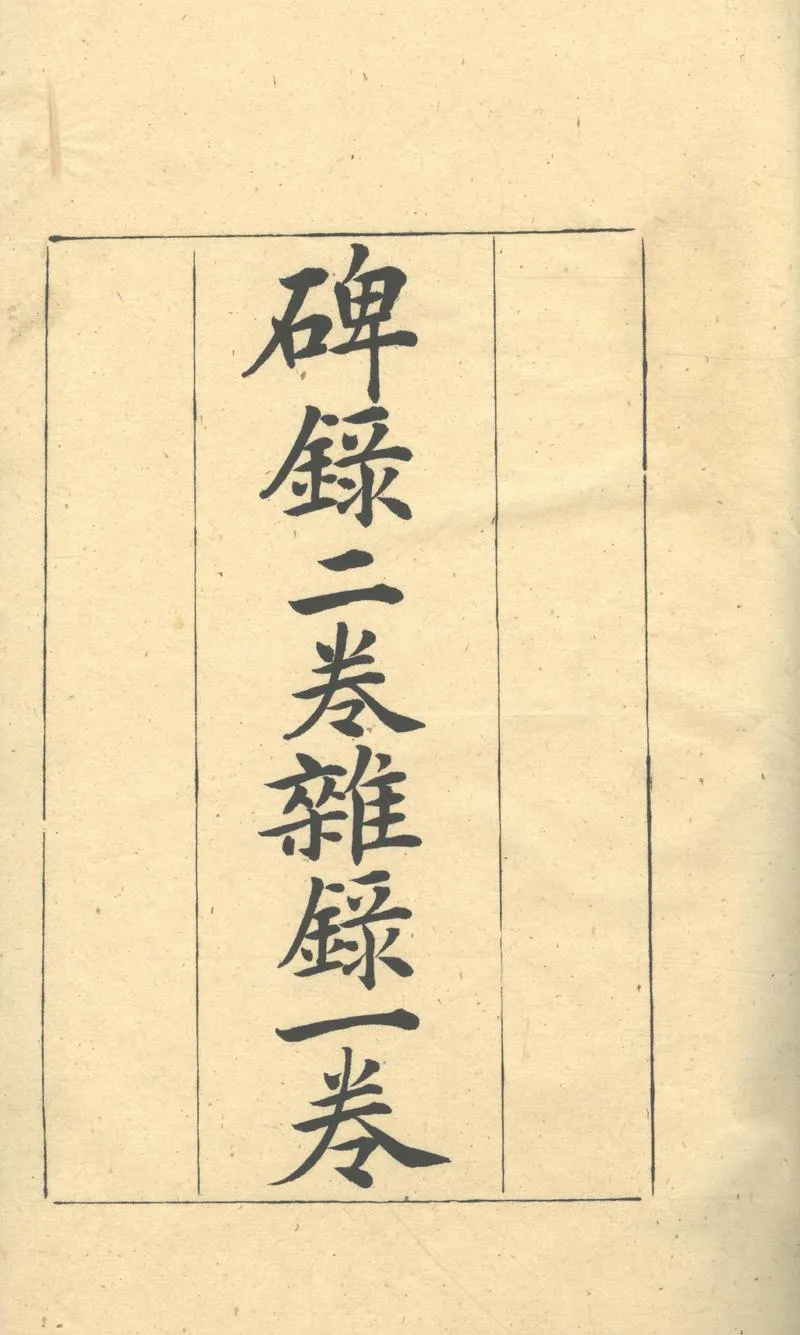 碑錄二卷雜錄一卷